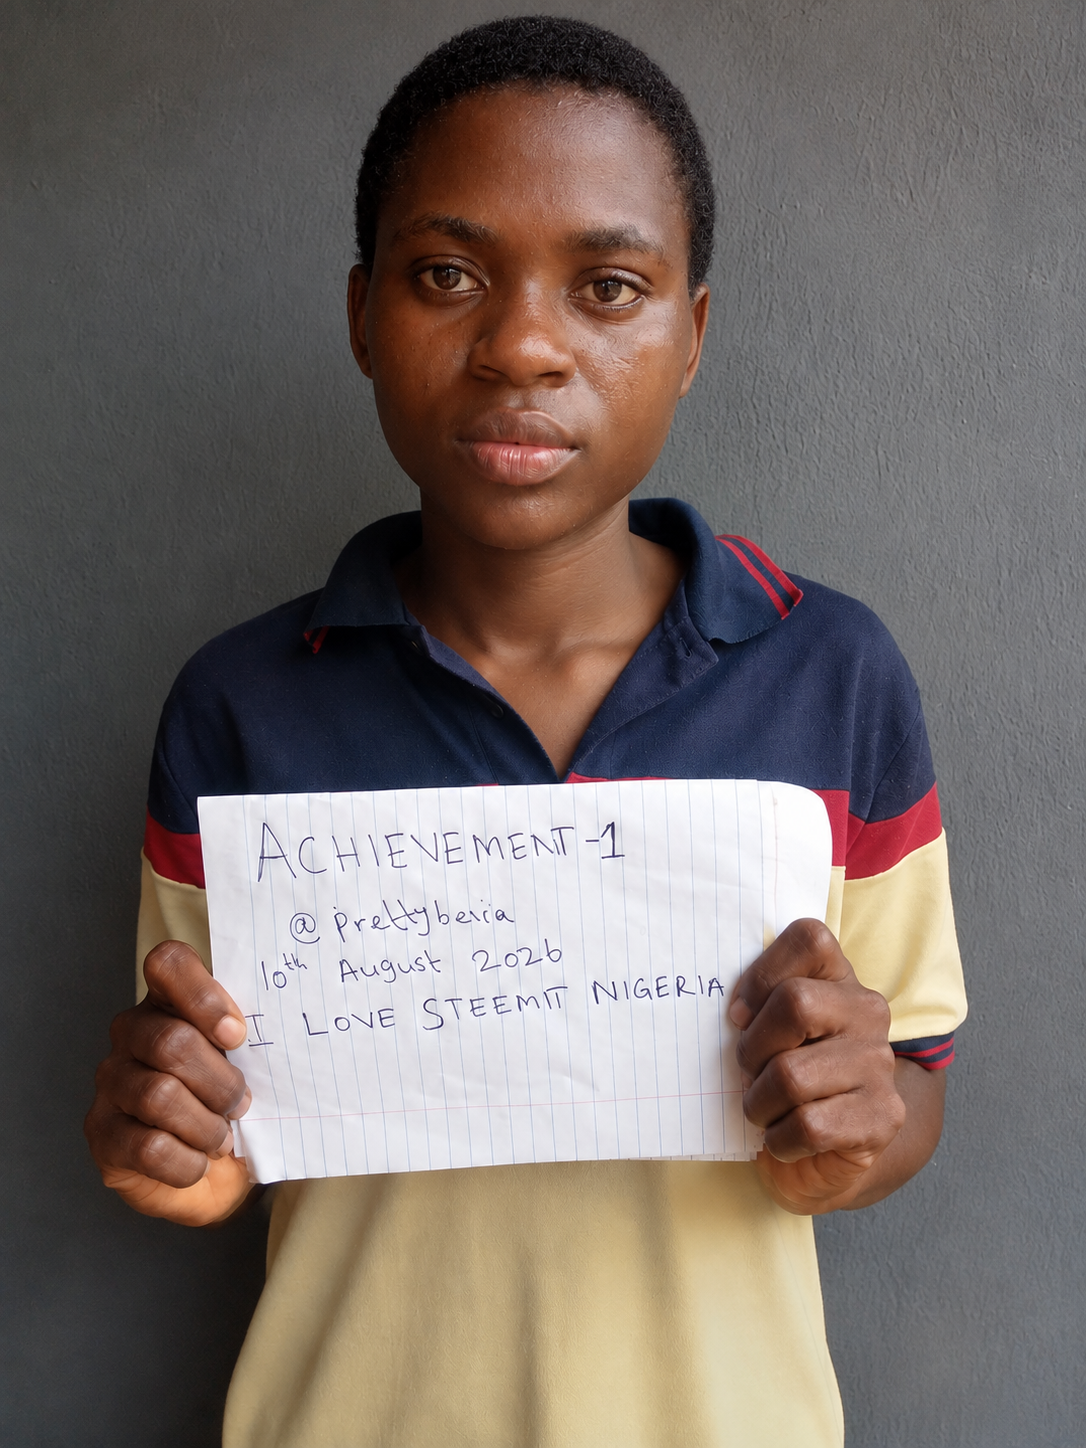 ACHIEVEMENT-1
@prettyberia
10th August 2026
I LOVE STEEMIT NIGERIA